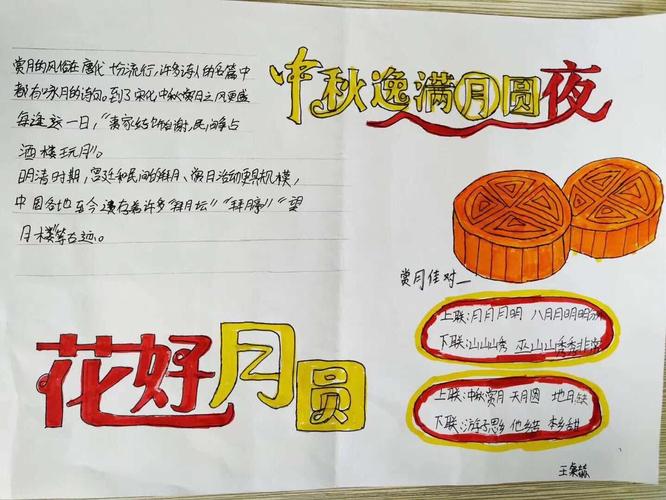 中秋逸满月圆夜
赏月的风俗在唐代十分流行,许多诗人的名篇中
都有咏月的诗句。到了宋代中秋赏月之风更盛
每逢这一日,“贵家结饰台榭,民间争占
酒楼玩月”。
明清时期,宫廷和民间的拜月、赏月活动更具规模,
中国各地至今遗存着许多“拜月坛”“拜月亭”“望
月楼”等古迹。
赏月佳对
上联:月月月明 八月月明明分
下联:山山山秀 巫山山秀秀非常
上联:中秋赏月 天月圆 地月缺
下联:游子思乡 他乡苦 本乡甜
花好月圆